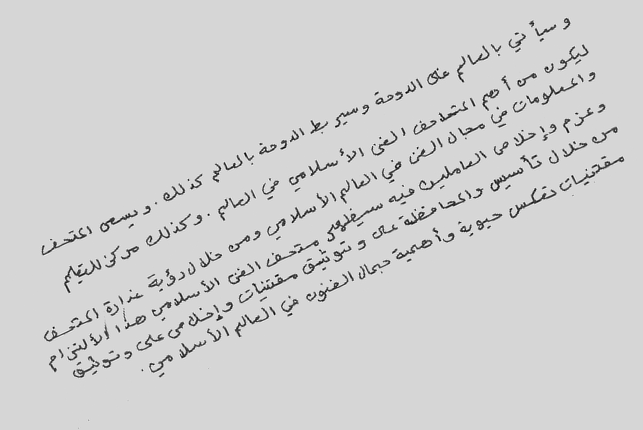 وسيأتي بالعالم على الدوحة وسيربط الدوحة بالعالم كذلك . ويسعى المتحف
ليكون من أهم المتاحف الفن الأسلامي في العالم . وكذلك مركز للتعليم
والمعلومات في مجال الفن في العالم الأسلامي ومن خلال رؤية المتحف
وعزم وإخلاص العاملين فيه سيظهر متحف الفن الأسلامي هذا الألتزام
من خلال تأسيس والمحافظة على وتوثيق مقتنيات وإخلاص على وتوثيق
مقتنيات تعكس حيوية وأهمية جمال الفنون في العالم الأسلامي .